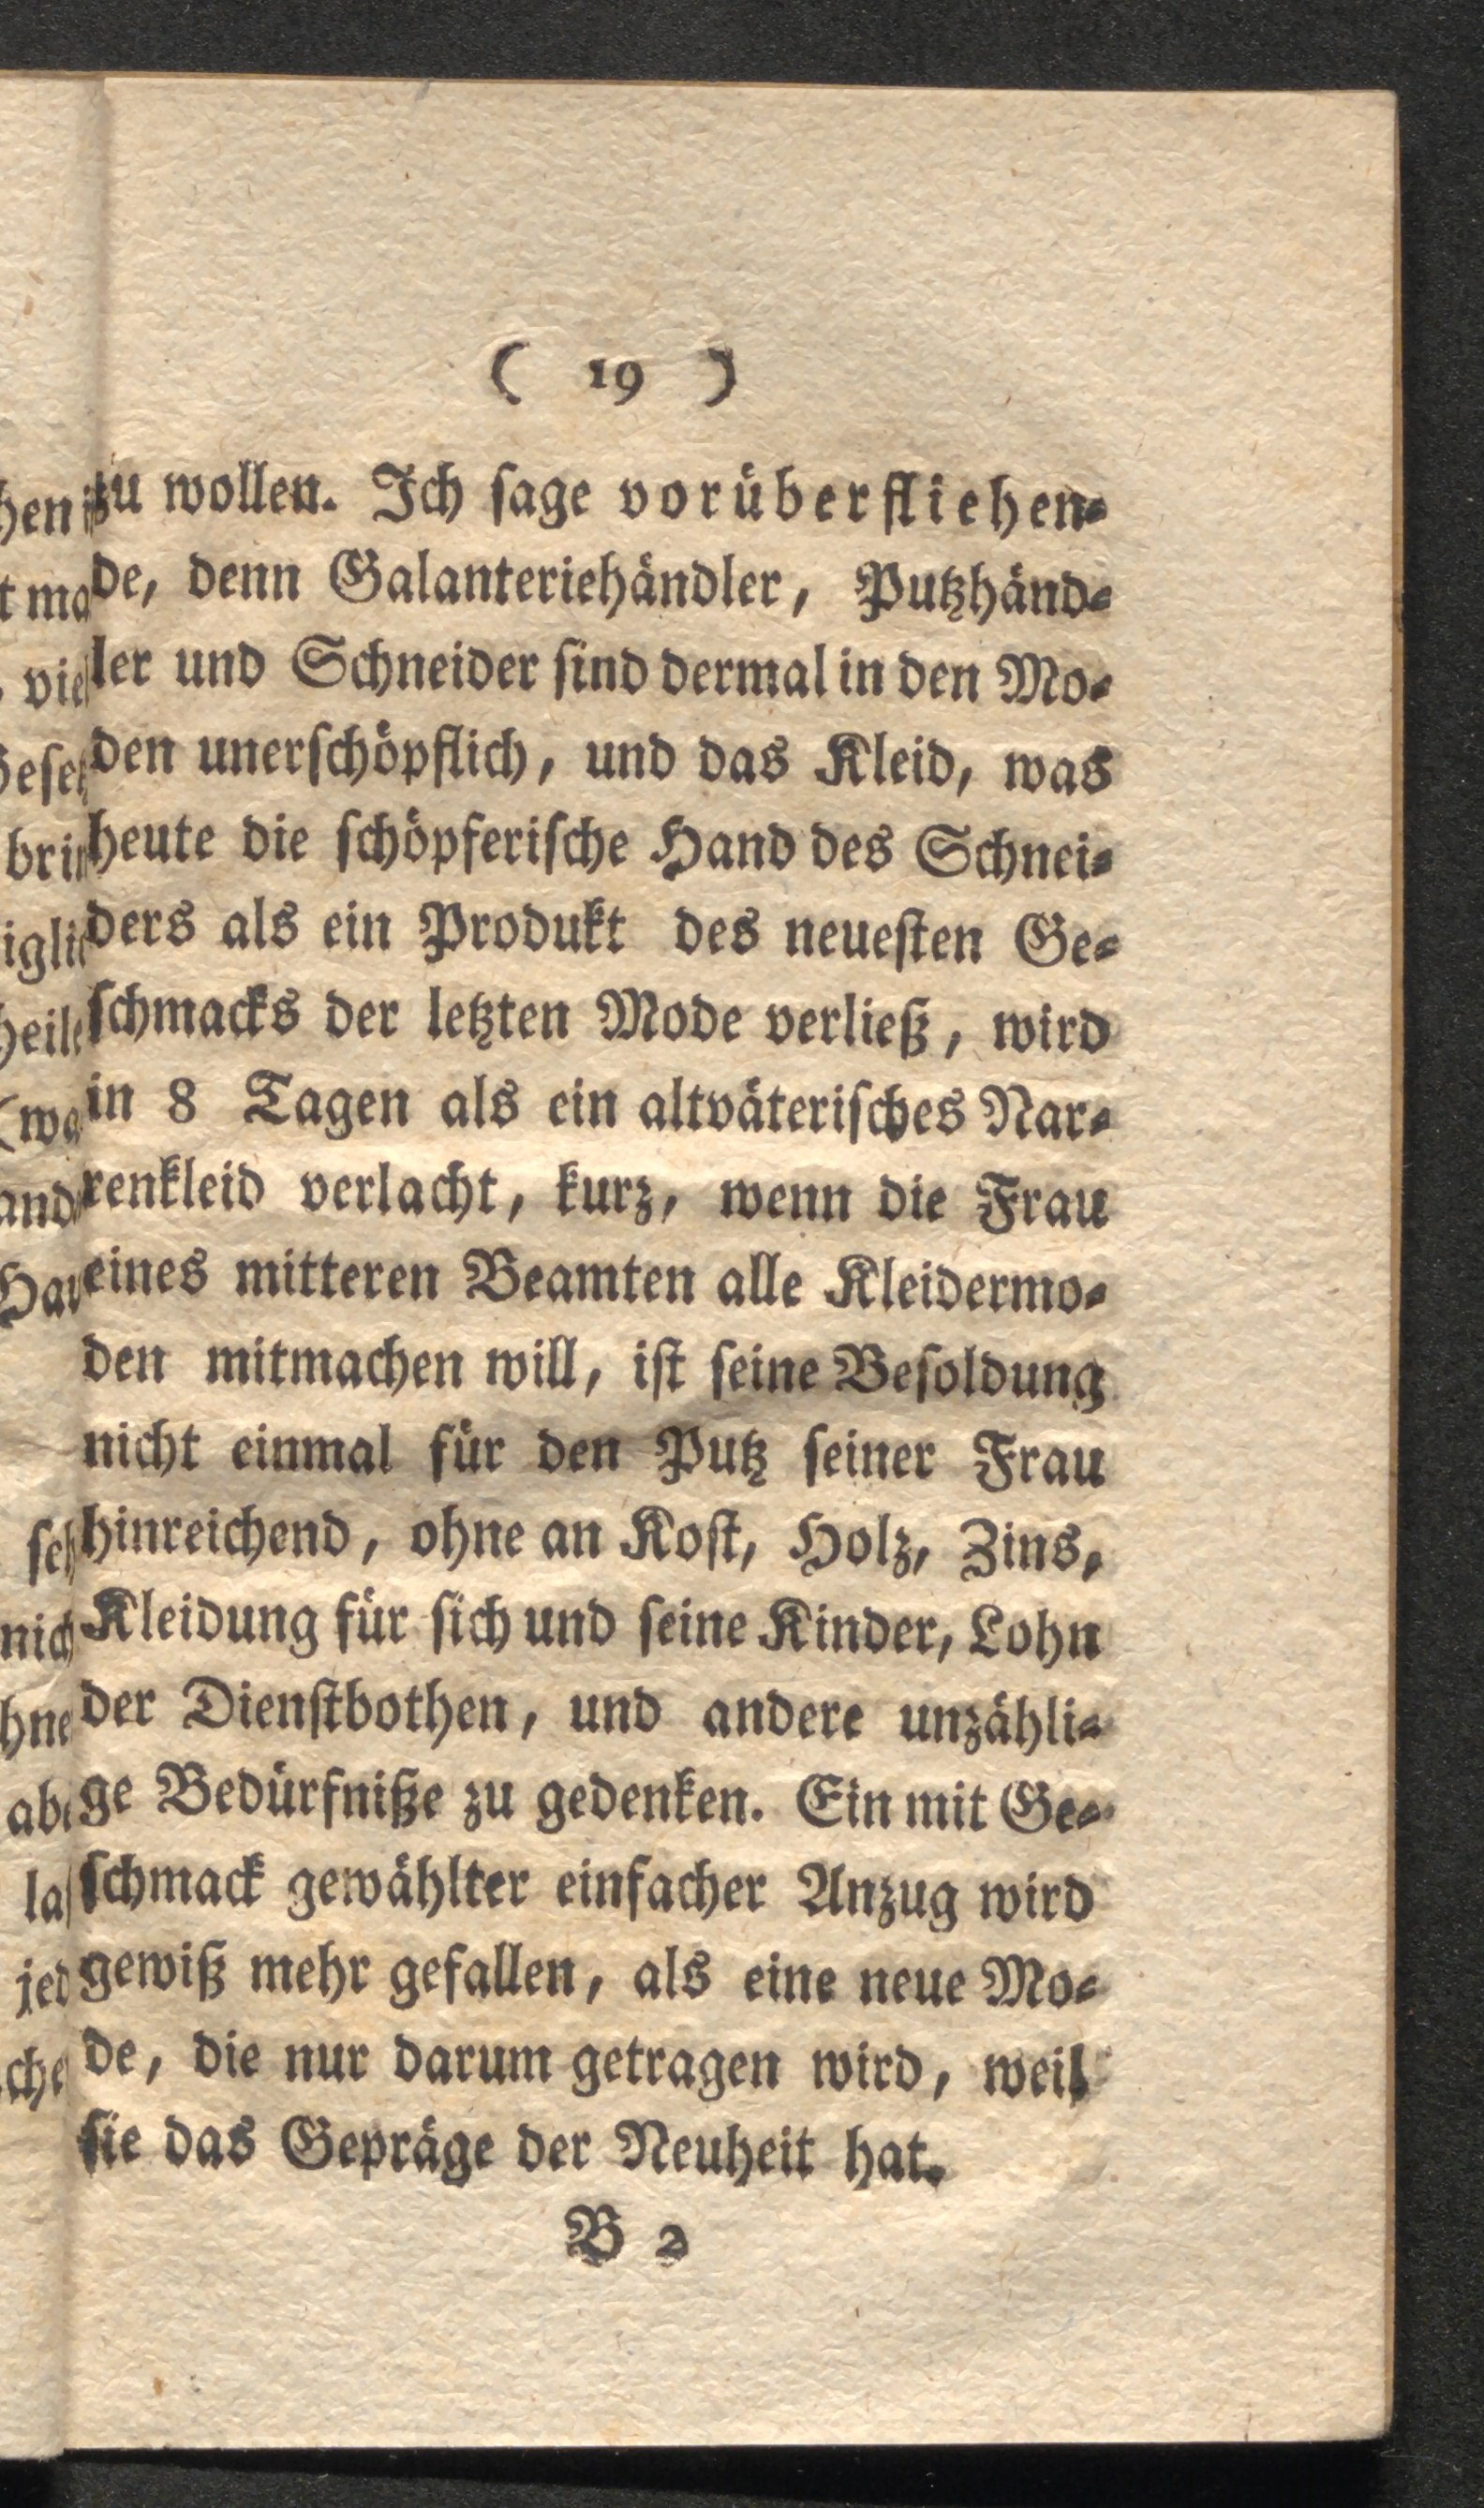 ( 19 )
zu wollen. Ich ſage vorüberfliehen⸗
de, denn Galanteriehändler, Putzhänd⸗
ler und Schneider ſind dermal in den Mo⸗
den unerſchöpflich, und das Kleid, was
heute die ſchöpferiſche Hand des Schnei⸗
ders als ein Produkt des neueſten Ge⸗
ſchmacks der letzten Mode verließ, wird
in 8 Tagen als ein altväteriſches Nar⸗
renkleid verlacht, kurz, wenn die Frau
eines mitteren Beamten alle Kleidermo⸗
den mitmachen will, iſt ſeine Beſoldung
nicht einmal für den Putz ſeiner Frau
hinreichend, ohne an Koſt, Holz, Zins,
Kleidung für ſich und ſeine Kinder, Lohn
der Dienſtbothen, und andere unzähli⸗
ge Bedürfniße zu gedenken. Ein mit Ge⸗
ſchmack gewählter einfacher Anzug wird
gewiß mehr gefallen, als eine neue Mo⸗
de, die nur darum getragen wird, weil
ſie das Gepräge der Neuheit hat.
B 2